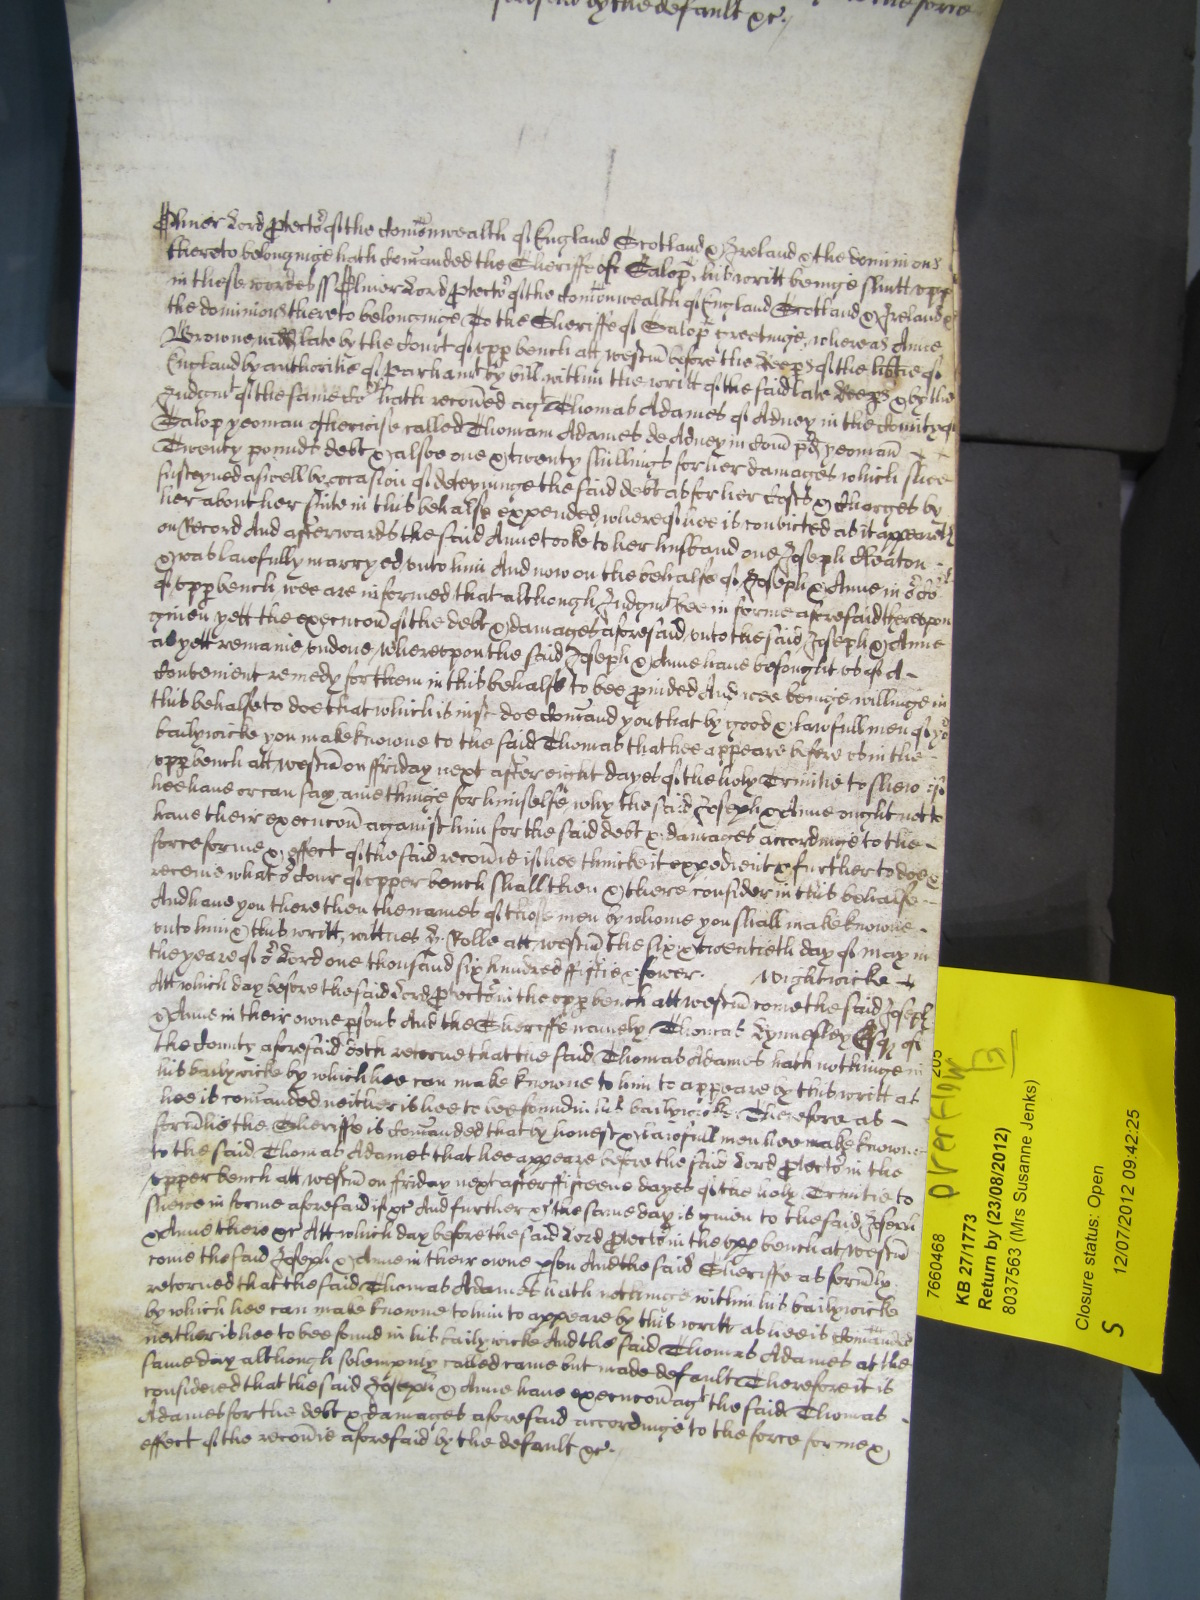 by the default &c.
Oliver Lord Protector of the Comonwealth of England Scotland & Ireland & the dominions
thereto belonginge hath comanded the Sheriffe of Salop his writt beinge shutt upp
in these wordes ss Oliver Lord Protector of the Comonwealth of England Scotland & Ireland &
the dominions thereto belonginge To the Sheriffe of Salop greetinge whereas Anne
Browne late by the Court of upp bench att westm before the Keeps of the libtie of
England by authoritie of Parliamt by bill within the writt of the said late Keeps & by the
Judgmt of the same Cort hath recoved agt Thomas Adames of Adney in the County of
Salop yeoman otherwise called Thomam Adames de Adney in Com pd yeoman
Twenty pounds debt & alsoe one & twenty shillings for her damages which shee
susteyned aswell by occasion of deteyninge the said debt as for her Costs & Charges by
her about her suite in this behalfe expended whereof hee is convicted as it appeareth
on Record And afterwards the said Anne tooke to her husband one Joseph Cleaton
& was lawfully marryed unto him And now on the behalfe of Joseph & Anne in or Cort
of upp bench wee are informed that although Judgmt bee in forme aforesaid thereupon
given yett the execucon of the debt & damages aforesaid unto the said Joseph & Anne
as yett remaine undone whereupon the said Joseph & Anne have besought us of a
Convenient remedy for them in this behalfe to bee pvided And wee beinge willinge in
this behalfe to doe that which is just doe Comand you that by good & lawfull men of yor
bailywicke you make knowne to the said Thomas that hee appeare before us in the
upp bench att westm on ffriday next after eight dayes of the holy Trinitie to shew if
hee have or can say anie thinge for himselfe why the said Joseph & Anne ought not to
have their execucon against him for the said debt & damages accordinge to the
force forme & effect of the said recovie if hee thincke it expedient & further to doe &
receive what or Cour of upper bench shall then & there consider in this behalfe
And have you there then the names of those men by whome you shall make knowne
unto him & this writt, wittnes H. Rolle att westm the six & twentieth day of May in
the yeare of or Lord one thousand six hundred ffiftie & fower. Wightwicke
Att which day before the said Lord Protector in the upp bench att westm come the said Joseph
& Anne in their owne psons And the Sheriffe namely Thomas Kynnesley Esq of
the County aforesaid doth retorne that the said Thomas Adames hath nothinge in
his bailywicke by which hee can make knowne to him to appeare by this writt as
hee is comanded neither is hee to bee found in his bailywicke Therefore as
formlie the Sheriffe is Comanded that by honest & lawfull men hee make knowne
to the said Thomas Adames that hee appeare before the said Lord Protector in the
upper bench att westm on ffriday next after ffifteene dayes of the holy Trinitie to
shewe in forme aforesaid if &c And further &c the same day is given to the said Joseph
& Anne there &c Att which day before the said Lord Protector in the upp bench at westm
come the said Joseph & Anne in their owne pson And the said Sheriffe as formly
retorned that the said Thomas Adames hath nothinge within his bailywicke
by which hee can make knowne to him to appeare by this writt as hee is Comanded
neither is hee to bee found in his bailywicke And the said Thomas Adames at the
same day although solempnly called came but made default Therefore it is
considered that the said Joseph & Anne have execucon agt the said Thomas
Adames for the debt & damages aforesaid accordinge to the force forme &
effect of the recovie aforesaid by the default &c.
7660468 205
overflow
KB 27/1773
Return by (23/08/2012)
8037563 (Mrs Susanne Jenks)
Closure status: Open
S 12/07/2012 09:42:25